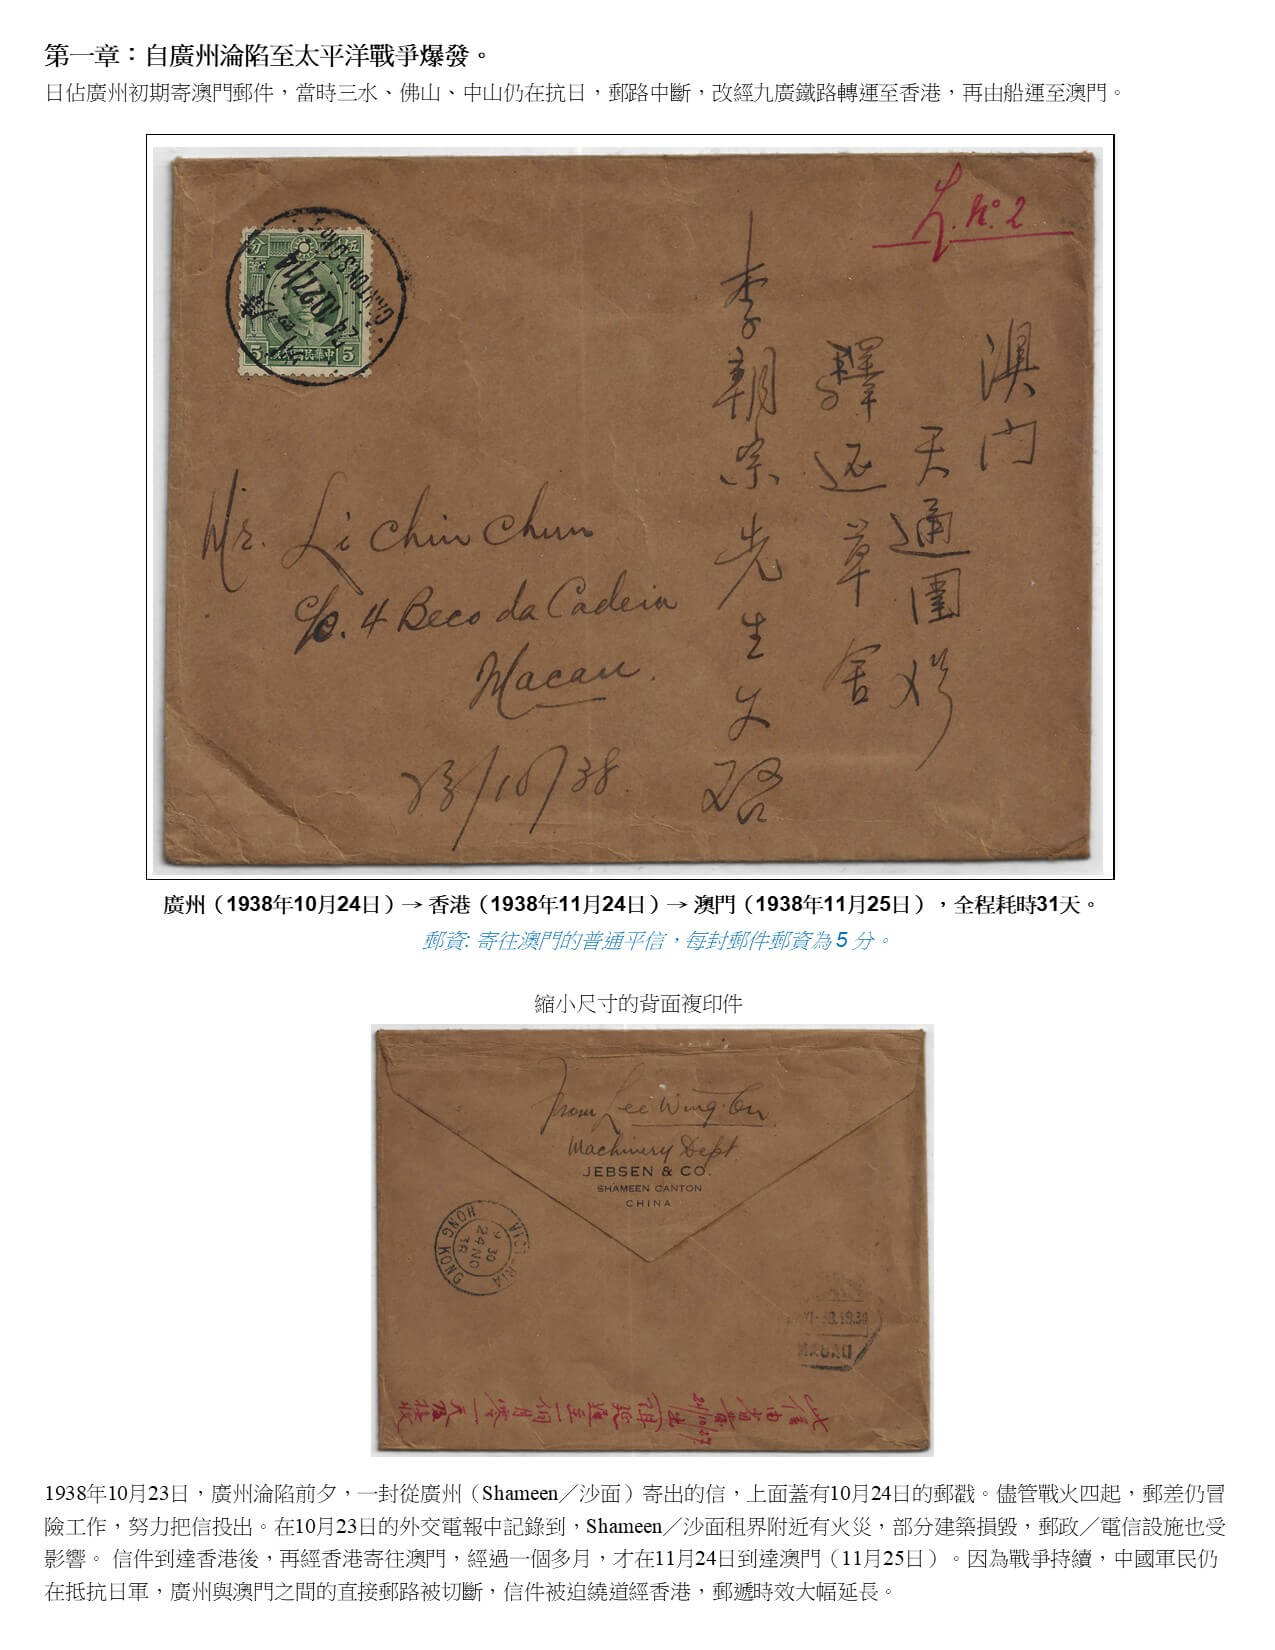 第一章：自廣州淪陷至太平洋戰爭爆發。
日佔廣州初期寄澳門郵件，當時三水、佛山、中山仍在抗日，郵路中斷，改經九廣鐵路轉運至香港，再由船運至澳門。
L. No. 2
澳門
天通圍
草舍
李朝宗先生文啓
分
5 中華民國郵政 5
CANTON
24 10 27
廣州
Mr. Li Chin Chun
c/o. 4 Beco da Cadeia
Macau.
23/10/38.
廣州（1938年10月24日）→ 香港（1938年11月24日）→ 澳門（1938年11月25日），全程耗時31天。
郵資: 寄往澳門的普通平信，每封郵件郵資為 5 分。
縮小尺寸的背面複印件
From Lee Wing
Machinery Dept
JEBSEN & CO.
SHAMEEN CANTON
CHINA
VICTORIA
30
24 NO
38
HONG KONG
MACAU
此信由省
24/10/27
個月零一天後收
1938年10月23日，廣州淪陷前夕，一封從廣州（Shameen／沙面）寄出的信，上面蓋有10月24日的郵戳。儘管戰火四起，郵差仍冒
險工作，努力把信投出。在10月23日的外交電報中記錄到，Shameen／沙面租界附近有火災，部分建築損毀，郵政／電信設施也受
影響。 信件到達香港後，再經香港寄往澳門，經過一個多月，才在11月24日到達澳門（11月25日）。因為戰爭持續，中國軍民仍
在抵抗日軍，廣州與澳門之間的直接郵路被切斷，信件被迫繞道經香港，郵遞時效大幅延長。